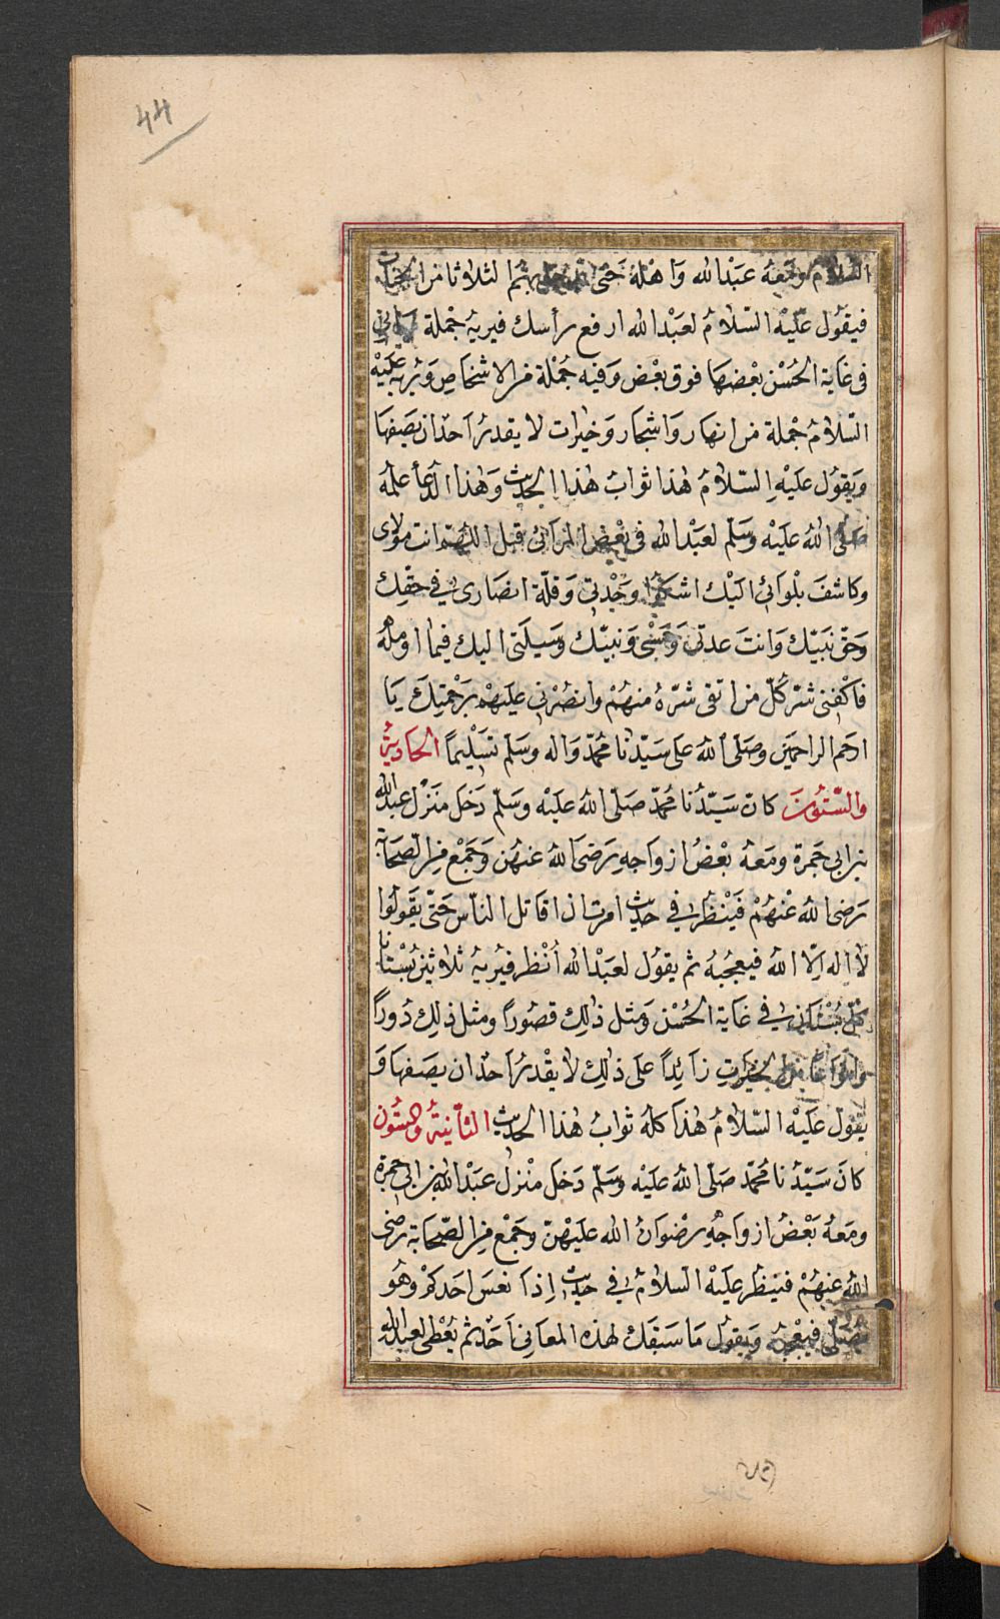 44
السلام ومعه عبد الله واهله حتى بهم لثلاثا من
فيقول عليه السلام لعبد الله ارفع رأسك فيريه جملة
فى غاية الحُسْن بعْضهَا فوق بعْض وَفيه جُمْلة من الاشخاصِ وَيُريه عليْه
السّلامُ جُملة من انهار وَاشجار وَخيرات لا يقدرُ اَحدٌ ان يَصفهَا
وَيَقوُل عليْهِ السّلامُ هٰذا ثوابُ هٰذا الحديث وَهٰذا الدّعأ علمهُ
صَلّى اللهُ عليْه وسَلّم لعَبْد الله فى بَعْض المرآئى قبل اللّهُمّ انت مولاى
وكاشفَ بلْوائى اليْك اشكوُا وَحْدتى وَقلّة انصَارى فى حقّك
وَحَقّ نبَيّك وَانتَ عدتى وَحَسْبى وَنبيّك وَسيلَتى اليك فيما اومله
فاكفنى شرّ كُلّ من اتقى شرّهُ منهُمْ وانصُرْنى عليهْم برَحْمتِكَ يَا
ارحم الراحمَين وصَلّى اللهَ على سَيّدنا مُحمّد وَاله وسَلّم تسَلْيماً الحَاديةُ
والسّتوُنَ كانَ سَيّدُنا مُحمّد صَلّى اللهُ عليْه وَسَلّم دَخلَ منَزْل عبد الله
بن ابى جَمرة ومَعهُ بعْضُ ازواجهِ رَضىَ اللهُ عنهُن وَجَمْعٌ مِن الصّحَابة
رَضى اللهُ عْنهُمْ فَيْنظرُ فى حدَيث امرتُ ان اقاتل الناس حَتّى يَقوُلوُا
لا اله اِلاّ اللهُ فيعجبُهُ ثم يقول لعَبْد الله اُنْظر فيُريهُ ثلاثين بُسْتانا
كُلّ بُسْتان فى غايَة الحُسْن وَمثل ذٰلك قصُوراً ومثل ذٰلِك دُوراً
وانَواعًا من الخيرَاتِ زآئداً على ذٰلِك لا يقْدرُ اَحدٌ ان يصَفهَا وَ
يَقوُل عليْه السّلامُ هٰذا كلهُ ثوابُ هٰذا الحديث الثّانيةُ والستّون
كانَ سَيّدُنا مُحمّد صَلّى اللهُ عليْه وسَلّم دَخلَ منْزلُ عبَدْ الله بن ابى جمرة
ومَعهُ بَعْضُ ازواجِهِ رضْوانُ الله عليْهنّ وجَمْع مِن الصّحَابة رضى
اللهُ عنهُمْ فيَنظرُ عليْه السلامُ فى حديث اِذا نعسَ احَدكمْ وهُو
يُصَلّى فيعْجبُه وَيقوُل مَا سَبَقك لهذه المعَانى اَحَدٌ ثم يُعْطى لعبد الله